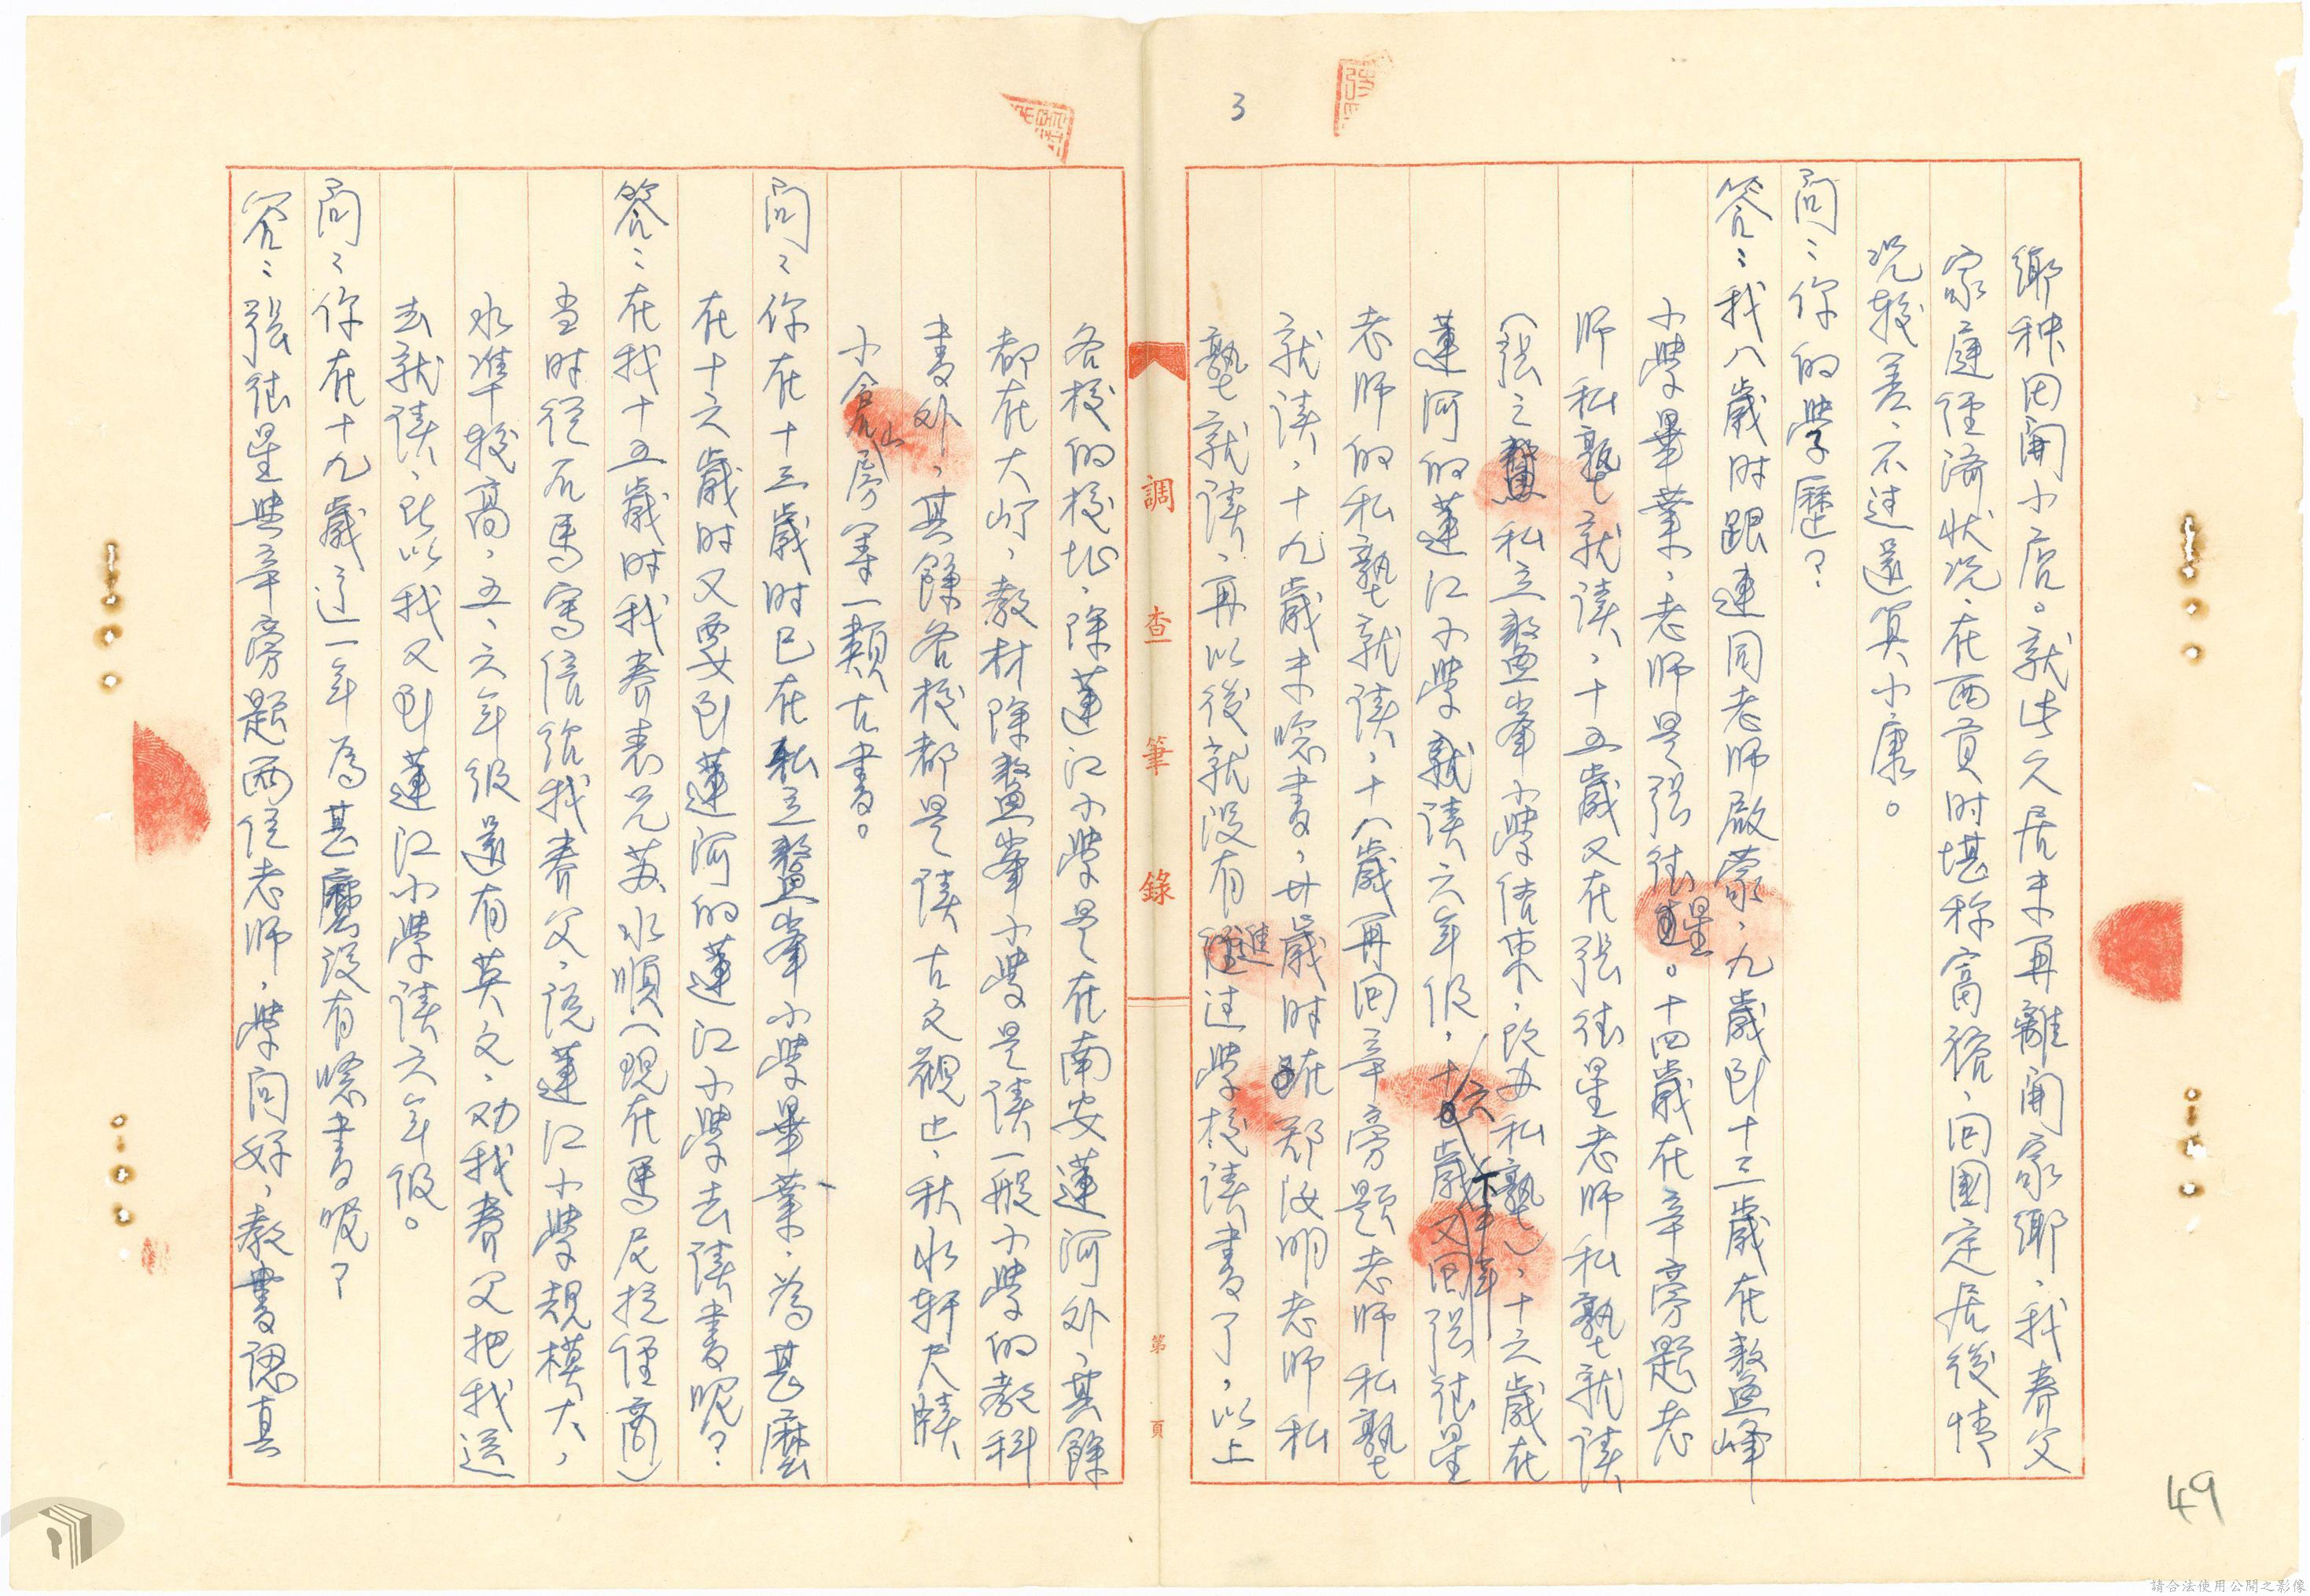 3
鄉种田開小店。就此久居未再離開家鄉，我养父
家庭經済狀况，在西貢时堪称富裕，回國定居後情
况较差，不过還算小康。
问：你的學歷？
答：我八歲时跟連同老师啟蒙，九歲到十三歲在鰲峰
小學畢業，老师是張往星。十四歲在辛旁題老
师私塾就讀，十五歲又在張往星老师私塾就讀
（張之私立鰲峯小學結束，改为私塾），十六歲在
蓮河的蓮江小學就讀六年级，十六歲下半年又回張往星
老师的私塾就讀，十八歲再回辛旁題老师私塾
就讀，十九歲未唸書，廿歲时在郑汝明老师私
塾就讀，再以後就没有進过學校讀書了，以上
調查筆錄
第 頁
各校的校址，除蓮江小學是在南安蓮河外，其餘
都在大嶝，教材除鰲峯小學是讀一般小學的教科
書外，其餘各校都是讀古文觀止，秋水軒尺牘，
小倉山房等一類古書。
问：你在十三歲时已在私立鰲峯小學畢業，為甚麼
在十六歲时又要到蓮河的蓮江小學去讀書呢？
答：在我十五歲时我养表兄苏水順（现在馬尼拉經商）
当时從尼馬寫信給我养父，說蓮江小學規模大，
水準较高，五、六年级還有英文，劝我养父把我送
去就讀，所以我又到蓮江小學讀六年级。
问：你在十九歲这一年為甚麼没有唸書呢？
答：張往星與辛旁題两位老师，學问好，教書認真
49
請合法使用公開之影像